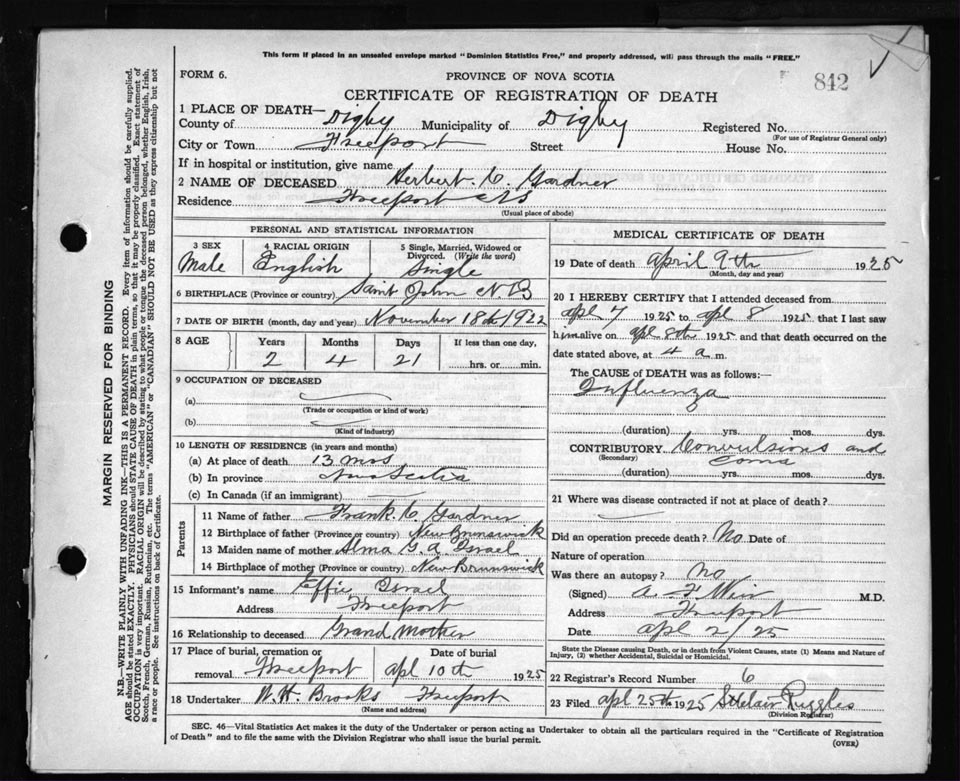 This form if placed in an unsealed envelope marked "Dominion Statistics Free," and properly addressed, will pass through the mails "FREE."
FORM 6.
PROVINCE OF NOVA SCOTIA
842
CERTIFICATE OF REGISTRATION OF DEATH
1 PLACE OF DEATH—
County of Digby Municipality of Digby Registered No.
(For use of Registrar General only)
City or Town Freeport Street House No.
If in hospital or institution, give name
2 NAME OF DECEASED Herbert. C. Gardner
Residence Freeport NS
(Usual place of abode)
PERSONAL AND STATISTICAL INFORMATION
3 SEX Male
4 RACIAL ORIGIN English
5 Single, Married, Widowed or Divorced. (Write the word) Single
6 BIRTHPLACE (Province or country) Saint John N.B
7 DATE OF BIRTH (month, day and year) November 18th 1922
8 AGE Years Months Days If less than one day,
2 4 21 hrs. or min.
9 OCCUPATION OF DECEASED
(a)
(Trade or occupation or kind of work)
(b)
(Kind of industry)
10 LENGTH OF RESIDENCE (in years and months)
(a) At place of death 13 mos
(b) In province Nova Scotia
(c) In Canada (if an immigrant)
Parents
11 Name of father Frank. C. Gardner
12 Birthplace of father (Province or country) New Brunswick
13 Maiden name of mother Alma G. A. Israel
14 Birthplace of mother (Province or country) New Brunswick
15 Informant's name Effie Israel
Address Freeport
16 Relationship to deceased Grand Mother
17 Place of burial, cremation or removal Freeport Date of burial Apl 10th 1925
18 Undertaker W. H. Brooks Freeport
(Name and address)
MEDICAL CERTIFICATE OF DEATH
19 Date of death April 9th 1925
(Month, day and year)
20 I HEREBY CERTIFY that I attended deceased from
apl 7 1925 to apl 8 1925 that I last saw
him alive on apl 8th 1925 and that death occurred on the
date stated above, at 4 a m.
The CAUSE of DEATH was as follows:—
Influenza
(duration) yrs. mos. dys.
CONTRIBUTORY Convulsions and
(Secondary) Coma
(duration) yrs. mos. dys.
21 Where was disease contracted if not at place of death?
Did an operation precede death? No Date of
Nature of operation
Was there an autopsy? no
(Signed) A. F. Weir M.D.
Address Freeport
Date apl 2/25
State the Disease causing Death, or in death from Violent Causes, state (1) Means and Nature of
Injury, (2) whether Accidental, Suicidal or Homicidal.
22 Registrar's Record Number 6
23 Filed apl 25th 1925 Ruggles
(Division Registrar)
SEC. 46—Vital Statistics Act makes it the duty of the Undertaker or person acting as Undertaker to obtain all the particulars required in the "Certificate of Registration
of Death" and to file the same with the Division Registrar who shall issue the burial permit.
(OVER)
MARGIN RESERVED FOR BINDING
N.B.—WRITE PLAINLY WITH UNFADING INK—THIS IS A PERMANENT RECORD. Every item of information should be carefully supplied.
AGE should be stated EXACTLY. PHYSICIANS should STATE CAUSE OF DEATH in plain terms, so that it may be properly classified. Exact statement of
OCCUPATION is very important. RACIAL ORIGIN will be described by stating to what people or tongue the deceased person belonged, whether English, Irish,
Scotch, French, German, Russian, Ruthenian, etc. The terms "AMERICAN" or "CANADIAN" SHOULD NOT BE USED as they express citizenship but not
a race or people. See instructions on back of Certificate.